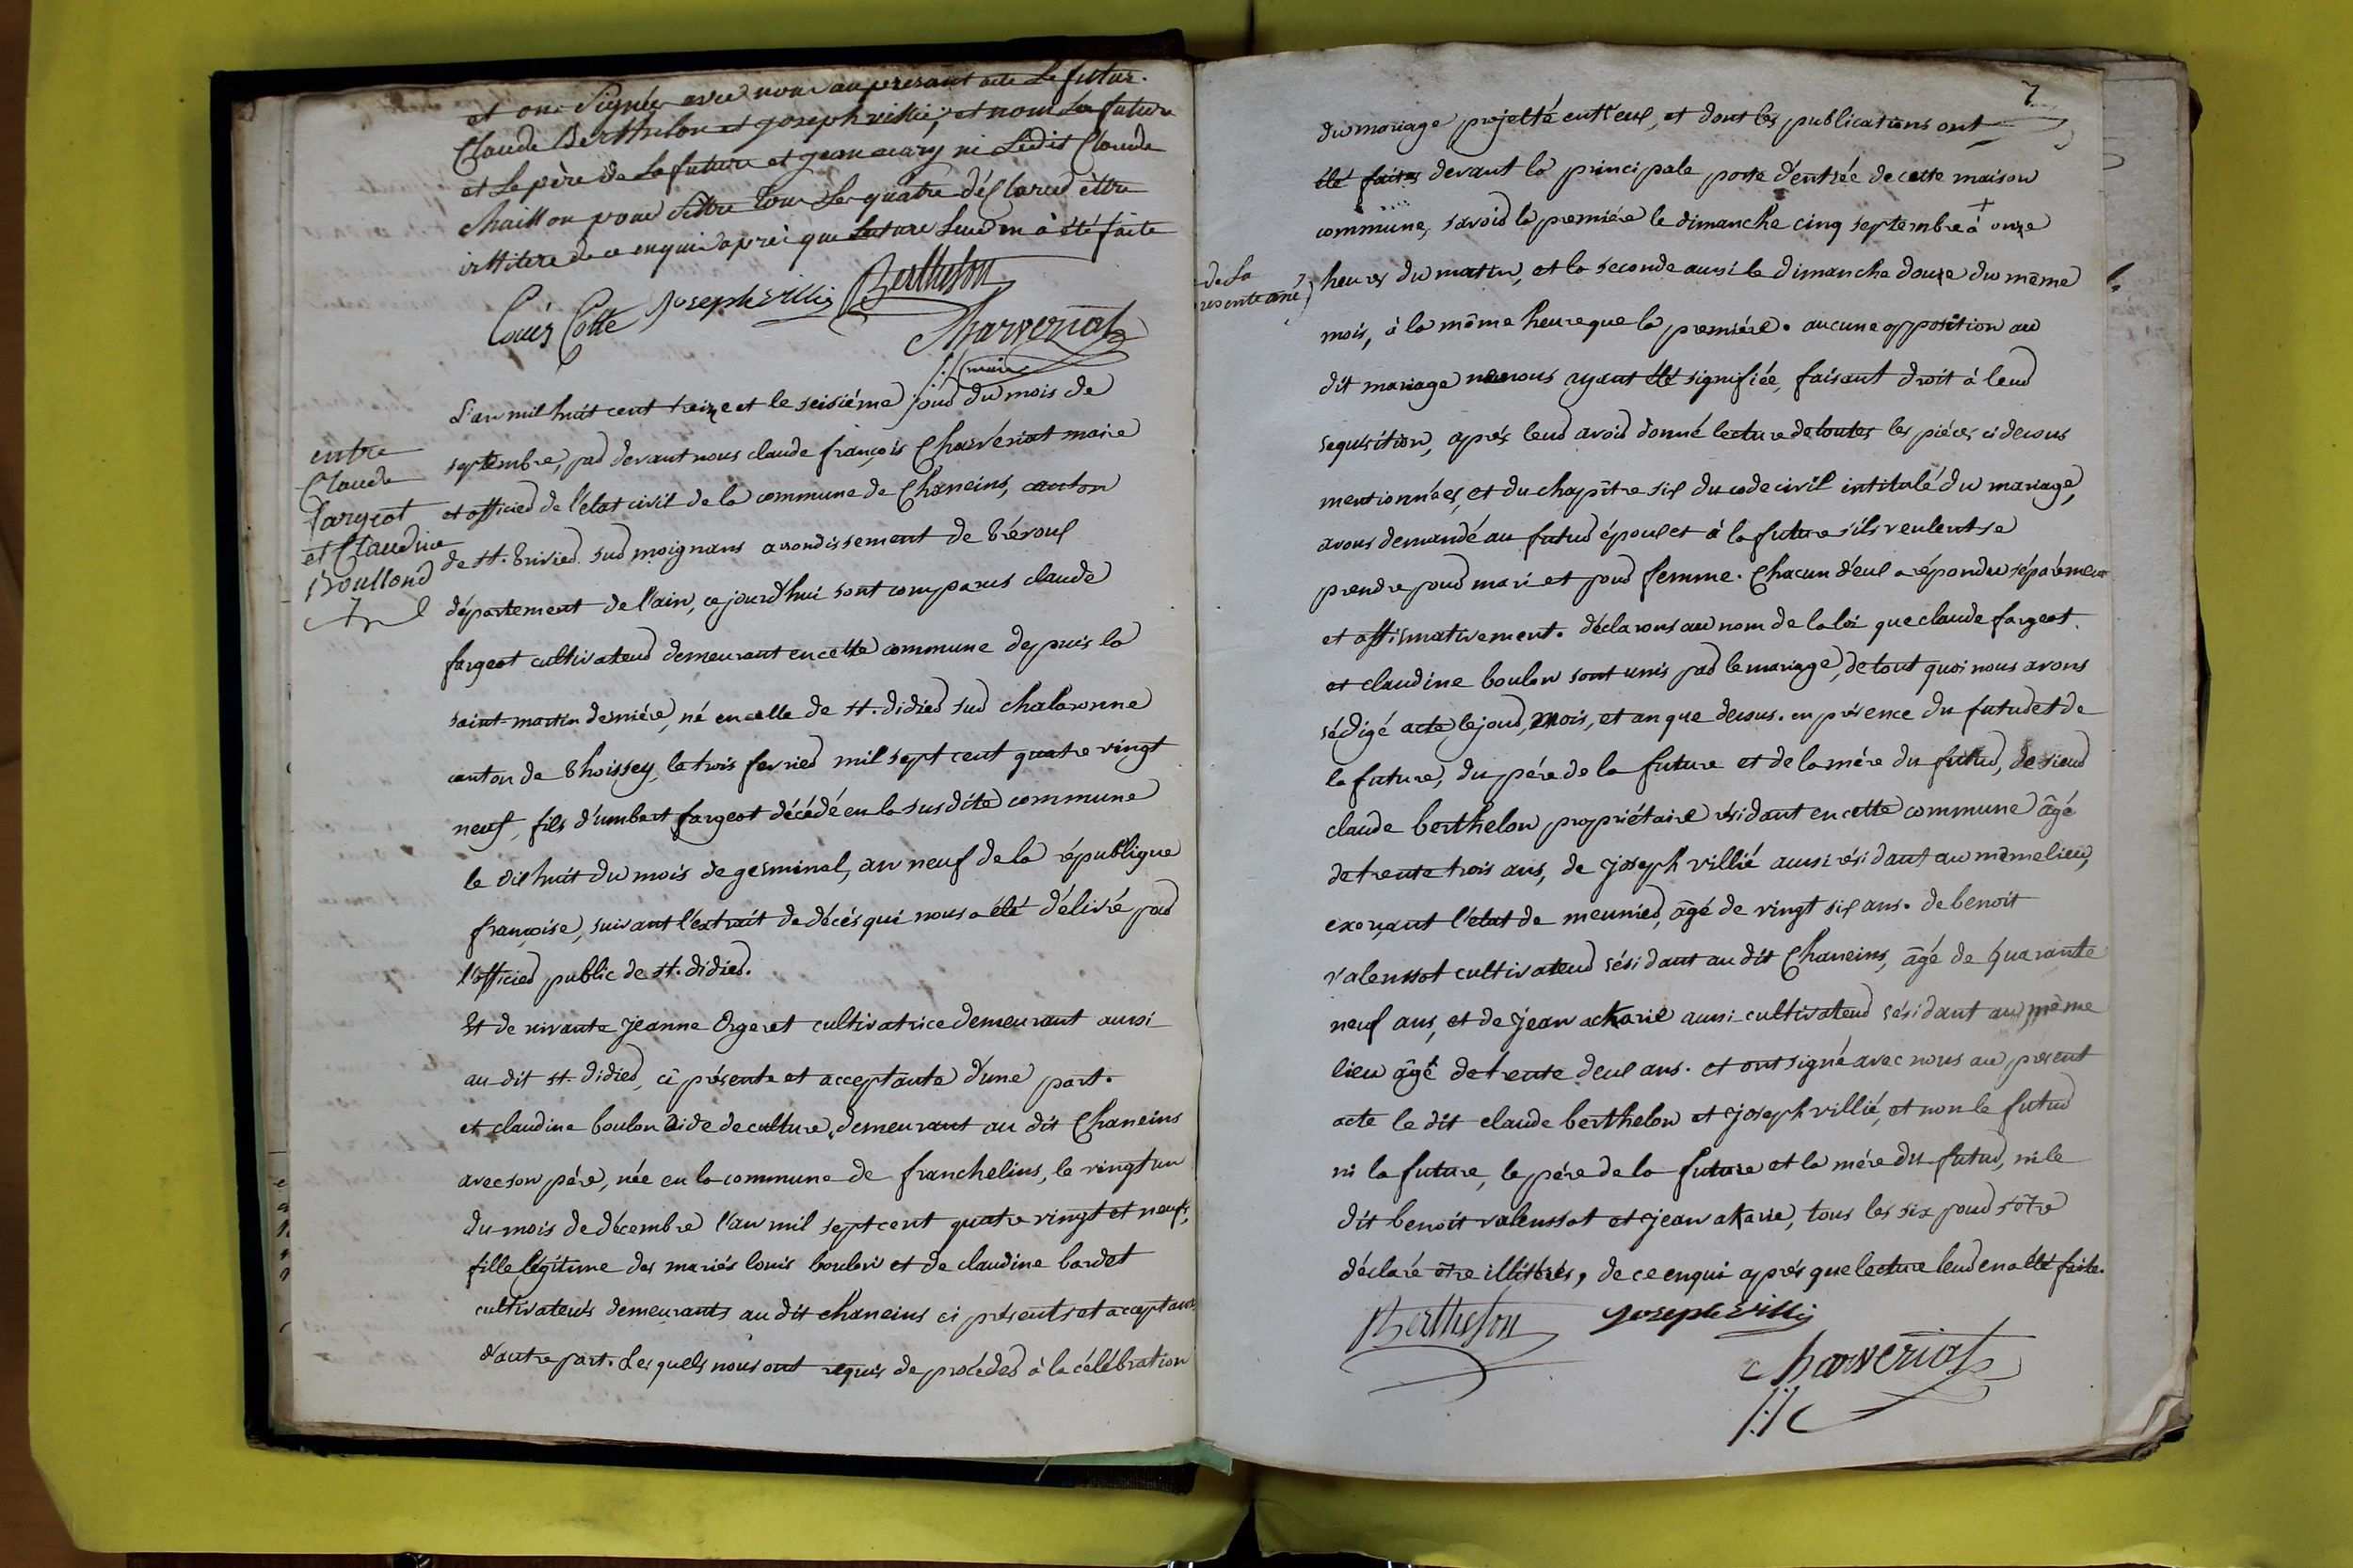 et ont Signée avec nous au presant acte Le futur.
Claude Berthelon et joseph villié, et nom La future
et Le père de La future et jean acary ni Ledit Claude
Chaillon pour dettre tous Les quatre déclarer être
ittitere de ce enquis après que lecture Leur en à été faite
Louis Cotte joseph villié Berthelon
Charveriat
maire
L'an mil huit cent treize et le seisiéme jour du mois de
septembre, par devant nous claude françois Charvériat maire
et officier de l'état civil de la commune de Chaneins, canton
de st. trivier sur moignans arrondissement de trévoux
département de l'ain, cejourd'hui sont comparus claude
fargeot cultivateur demeurant en cette commune depuis la
saint-martin derniére, né en celle de st. didier sur chalaronne
canton de thoissey, le trois fevrier mil sept cent quatre vingt
neuf, fils d'umbert fargeot décédé en la susdite commune
le dix huit du mois de germinal, an neuf de la république
françoise, suivant l'extrait de décés qui nous a été délivré par
l'officier public de st. didier.
Et de vivante jeanne Orgeret cultivatrice demeurant aussi
au dit st. didier, ci présente et acceptante d'une part.
et claudine boulon aide de culture, demeurant au dit Chaneins
avec son pére, née en la commune de franchelins, le vingt un
du mois de décembre l'an mil sept cent quatre vingt et neuf,
fille légitime des mariés louis boulon et de claudine bardet
cultivateurs demeurants au dit chaneins ci présents et acceptans
d'autre part. Lesquels nous ont requis de procéder à la célébration
entre
Claude
fargeot
et Claudine
Boullond
7
du mariage projetté entr'eux, et dont les publications ont
été faites devant la principale porte d'entrée de cette maison
commune, savoir la premiére le dimanche cinq septembre + à onze
heures du matin, et la seconde aussi le dimanche douze du même
de la
présente anné
mois, à la même heure que la premiére. aucune opposition au
dit mariage ne nous ayant été signifiée, faisant droit à leur
requisition, aprés leur avoir donné lecture de toutes les piéces ci dessus
mentionnées, et du chapître six du code civil intitulé du mariage,
avons demandé au futur époux et à la future s'ils veulent se
prendre pour mari et pour femme. Chacun d'eux a répondu séparément
et affirmativement. déclarons au nom de la loi que claude fargeot
et claudine boulon sont unis par le mariage, de tout quoi nous avons
rédigé acte, le jour, mois, et an que dessus. en présence du futur et de
la future, du pére de la future et de la mére du futur, de sieur
claude berthelon propriétaire résidant en cette commune âgé
de trente trois ans, de joseph villié aussi résidant au même lieu,
exerçant l'état de meunier, âgé de vingt six ans. de benoit
valenssot cultivateur résidant au dit Chaneins, âgé de quarante
neuf ans, et de jean acharie aussi cultivateur résidant au même
lieu âgé de trente deux ans. et ont signé avec nous au présent
acte le dit claude berthelon et joseph villié, et non le futur
ni la future, le pére de la future et la mére du futur, ni le
dit benoit valenssot et jean akarie, tous les six pour s'être
déclaré être illitérés, de ce enquis aprés que lecture leur en a été faite.
Berthelon joseph villié
Charveriat